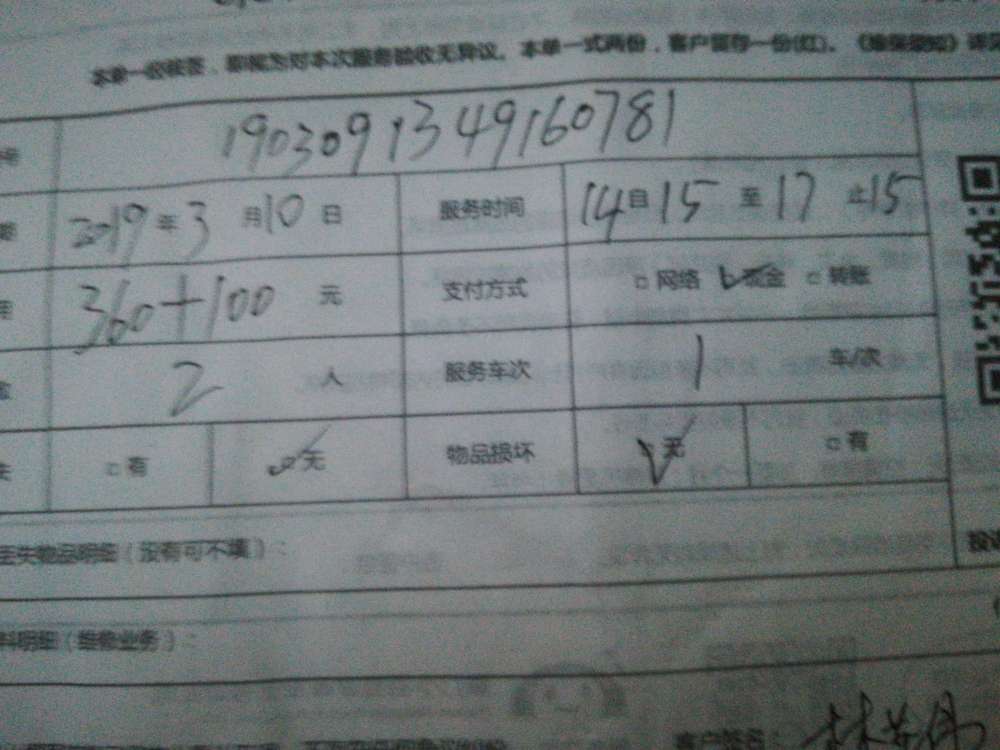 本单一经被签，即视为对本次服务验收无异议。本单一式两份，客户留存一份(红)。
号 1903091349160781
期 2019年3月10日 服务时间 14自15至17止15
360+100元 支付方式 □网络 ☑现金 □转账
2人 服务车次 1车/次
失 □有 ☑无 物品损坏 ☑无 □有
丢失物品明细（没有可不填）：
料明细（维修业务）：
客户签名：